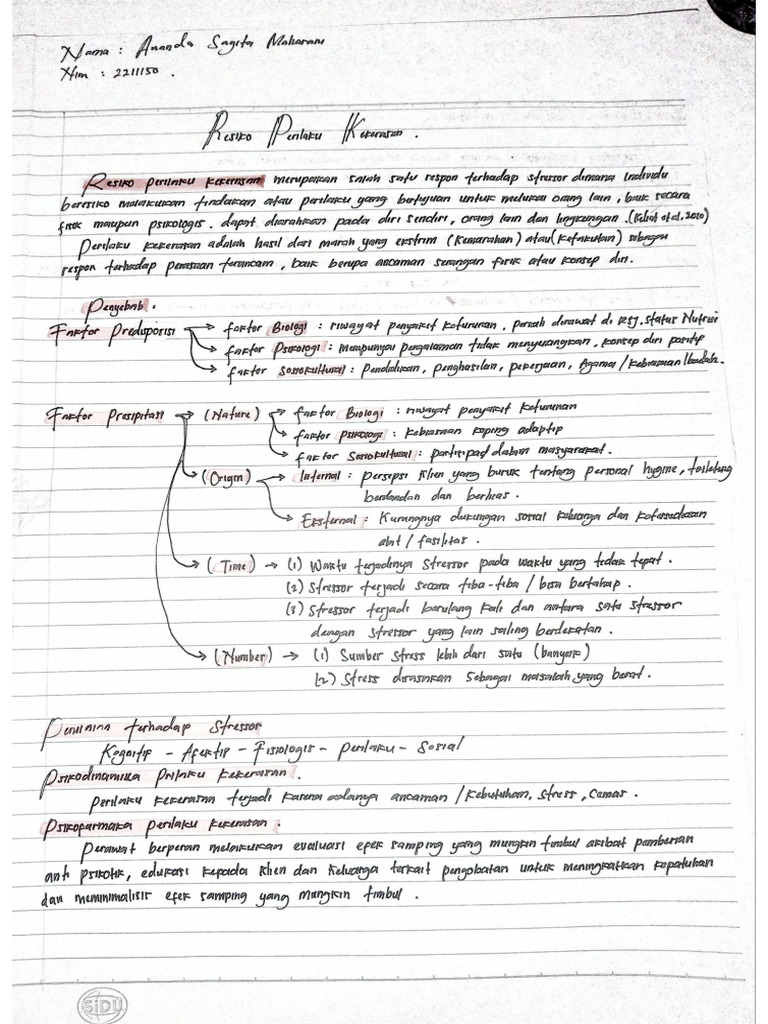 Nama : Ananda Sagita Maharani
Nim : 2211150 .
Resiko Perilaku Kekerasan .
Resiko perilaku kekerasan merupakan salah satu respon terhadap stressor dimana individu
beresiko malakukan tindakan atau perilaku yang bertujuan untuk melukai orang lain , baik secara
fisik maupun psikologis . dapat diarahkan pada diri sendiri , orang lain dan lingkungan . (Keliat et al. 2010)
Perilaku kekerasan adalah hasil dari marah yang ekstrim (kemarahan) atau (ketakutan) sebagai
respon terhadap perasaan terancam , baik berupa ancaman serangan fisik atau konsep diri .
Penyebab .
Faktor Predisposisi → faktor Biologi : riwayat penyakit keturunan . pernah dirawat di RSJ . Status Nutrisi
→ faktor Psikologi : mempunyai pengalaman tidak menyenangkan , konsep diri positif
→ faktor Sosiokultural : Pendidikan , penghasilan , pekerjaan , Agama / kebiasaan Ibadah .
Faktor Presipitasi → (Nature) → faktor Biologi : riwayat penyakit keturunan
→ faktor psikologi : kebiasaan koping adaptip
→ faktor Sosiokultural : partisipasi dalam masyarakat .
→ (Origin) → Internal : persepsi klien yang buruk tentang personal hygine , toileting
berdandan dan berhias .
→ Eksternal : Kurangnya dukungan sosial keluarga dan ketersediaan
alat / fasilitas .
→ (Time) → (1) Waktu terjadinya Stressor pada waktu yang tidak tepat .
(2) Stressor terjadi secara tiba-tiba / bisa bertahap .
(3) Stressor terjadi berulang kali dan antara satu stressor
dengan stressor yang lain saling berdekatan .
→ (Number) → (1) Sumber stress lebih dari satu (banyak)
(2) Stress dirasakan sebagai masalah yang berat .
Penilaian terhadap Stressor
Kognitif - Afektip - Fisiologis - perilaku - Sosial
Psikodinamika Prilaku kekerasan .
Perilaku kekerasan terjadi karena adanya ancaman / kebutuhan , stress , Cemas .
Psikofarmaka perilaku kekerasan .
Perawat berperan melakukan evaluasi efek samping yang mungkin timbul akibat pemberian
anti psikotik , edukasi kepada klien dan keluarga terkait pengobatan untuk meningkatkan kepatuhan
dan meminimalisir efek samping yang mungkin timbul .
SIDU